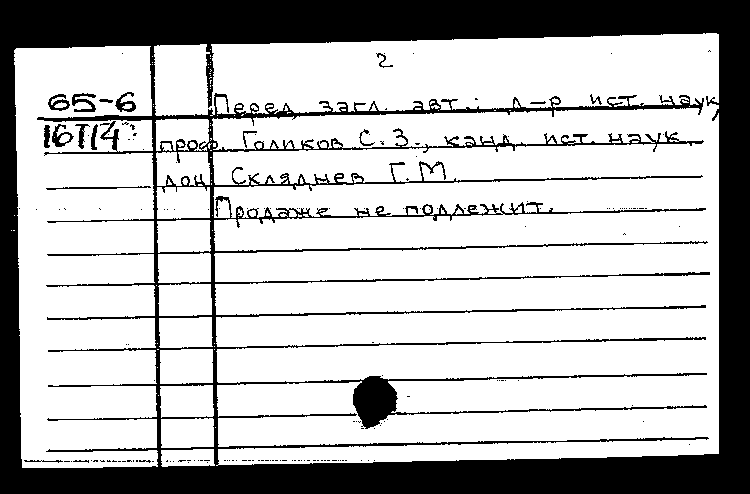 2
65-6
Перед загл. авт.: д-р ист. наук,
16714
проф. Голиков С. З., канд. ист. наук
доц Скляднев Г. М.
Продаже не подлежит.